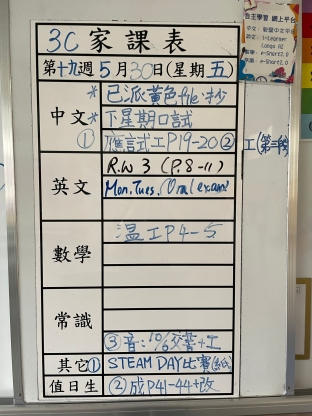 3C 家課表
第十九週5月30日(星期五)
中文
* 已派黃色file-抄
* 下星期口試
① 應試工P19-20② 工(第三
英文
R.W 3 (P.8-11)
Mon,Tues. Oral exam
數學
溫工P4-5
常識
③音:10/6交書+工
其它① STEAM DAY比賽
值日生 ②成P41-44+改
自主學習 網上平台
i-Learner